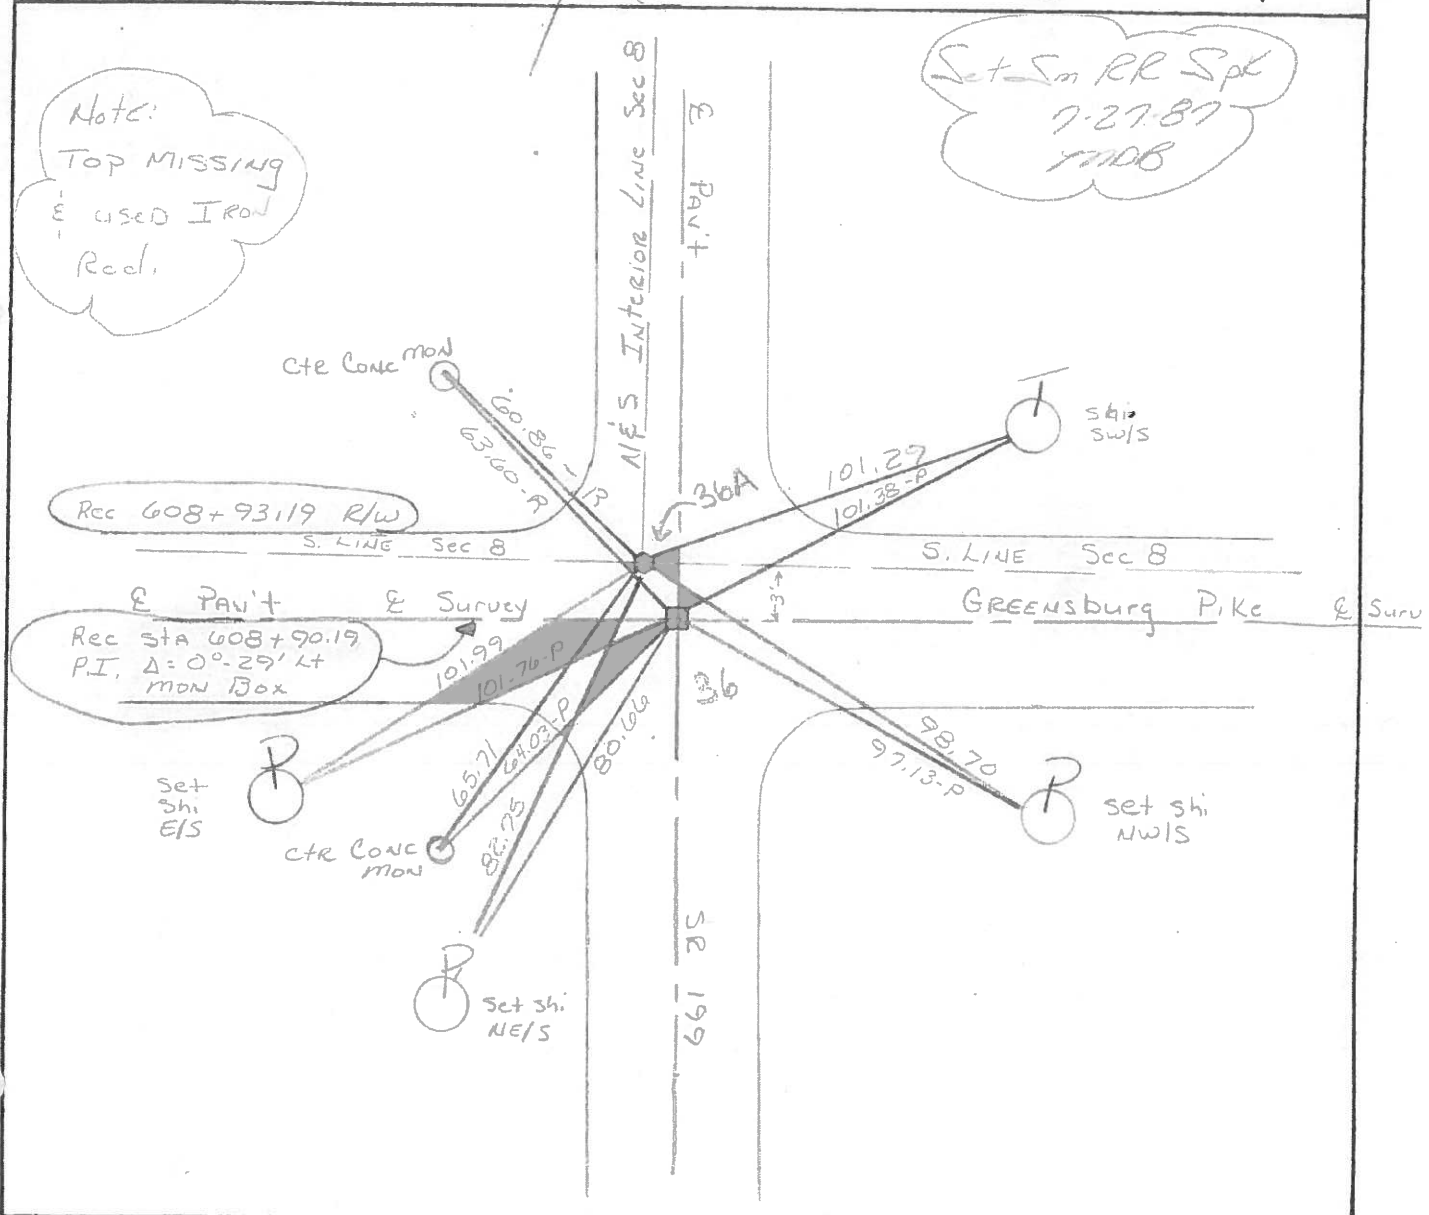 Note:
Top Missing
& used Iron
Rod.
Set Sm RR Spk
7-27-87
MDB
N & S Interior Line Sec 8
℄ Pav't.
Ctr Conc Mon
60.86-R
63.60-R
36A
101.29
101.38-P
shi
SW/S
Rec 608+93.19 R/W
S. Line Sec 8
S. Line Sec 8
℄ Pav't ℄ Survey
3'
Greensburg Pike ℄ Surv
Rec Sta 608+90.19
P.I. Δ= 0°-29' Lt
Mon Box
101.99
101.76-P
36
65.71
64.03-P
80.66
82.75
98.70
97.13-P
Set
Shi
E/S
Ctr Conc
Mon
set shi
NW/S
SR 199
Set shi
NE/S